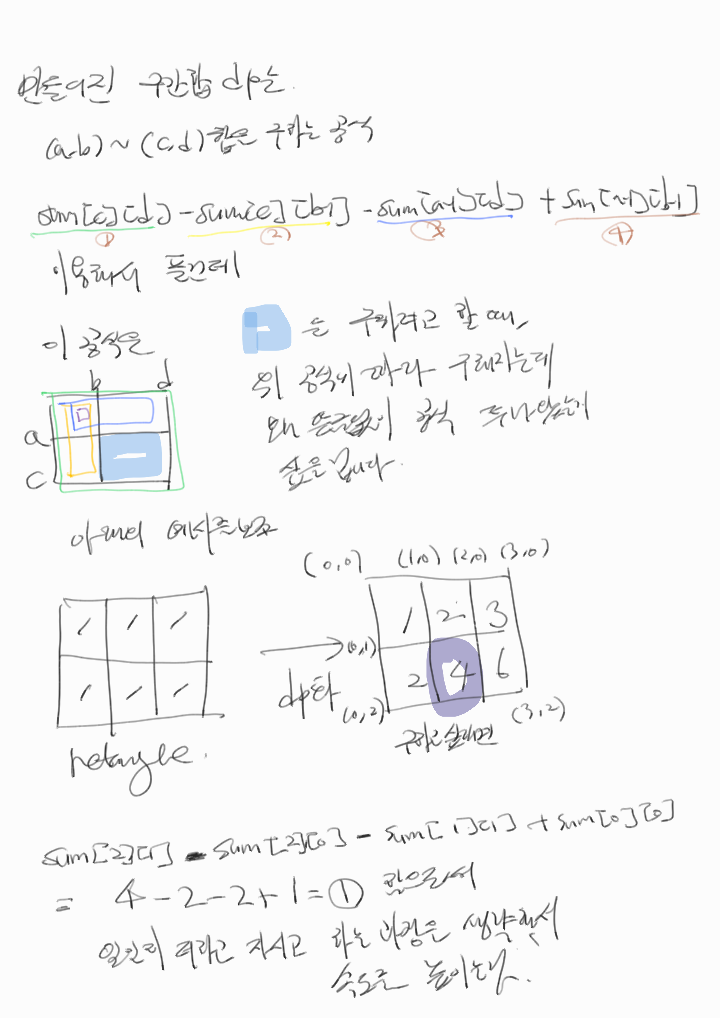 만들어진 구간합 dp는
(a,b) ~ (c,d) 합은 구하는 공식
sum[c][d] - sum[c][b-1] - sum[a-1][d] + sum[a-1][b-1]
① ② ③ ④
이용해서 푸는데
이 공식은
는 구하려고 할 때,
위 공식에 따라 구해지는데
왜 공식
싶을 겁니다.
b d
a
c
아래 예시를 보자
(0,0) (1,0) (2,0) (3,0)
/ / / 1 2 3
(0,1)
dp화
/ / / 2 4 6
(0,2) (3,2)
구하고 싶다면
retangle.
sum[2][1] - sum[2][0] - sum[1][1] + sum[0][0]
= 4 - 2 - 2 + 1 = ① 값으로써
일일이 더하고 하는 과정은 생략해서
속도를 높이는